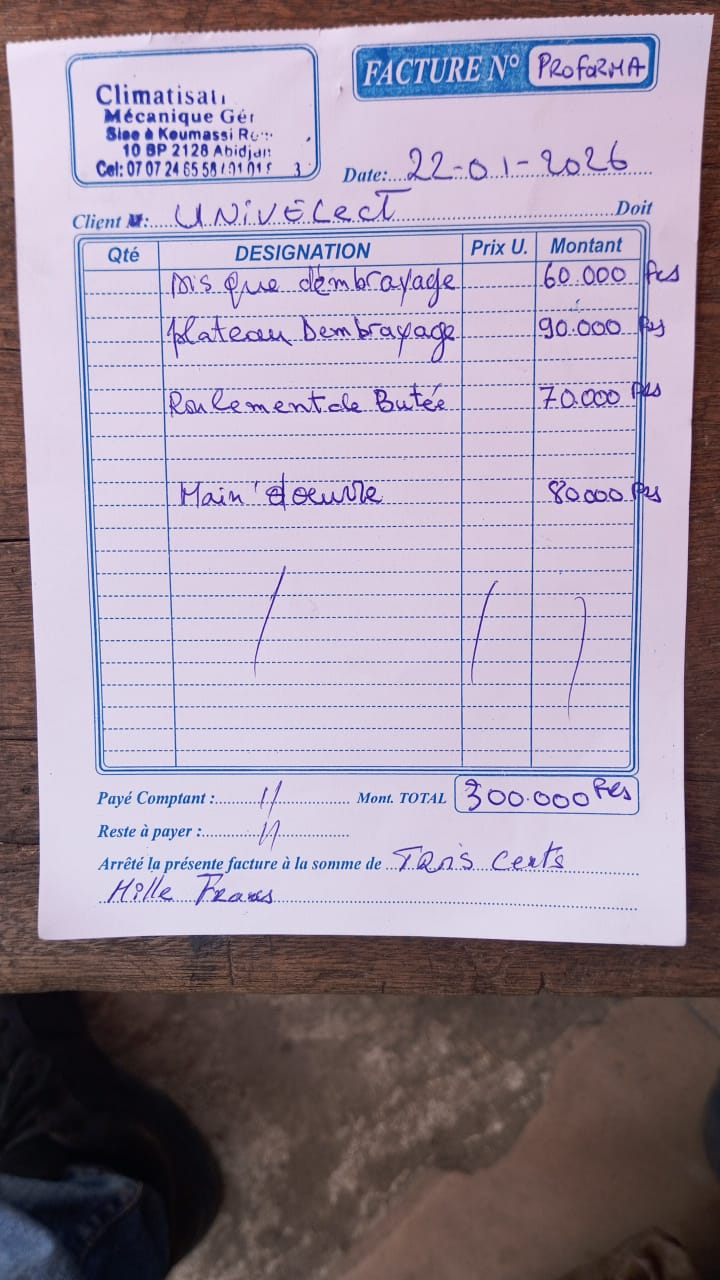 FACTURE N° PROFORMA
Climatisati
Mécanique Gén
Sise à Koumassi
10 BP 2128 Abidjan
Cel: 07 07 24 65 58 / 01 01
Date: 22-01-2026
Client M: UNIVELECT Doit
Qté DESIGNATION Prix U. Montant
Disque d'embrayage 60.000 Frs
plateau Dembrayage 90.000 Frs
Roulement de Butée 70.000 Frs
Main'd'oeuvre 80000 Frs
Payé Comptant : 11 Mont. TOTAL 300.000 Frs
Reste à payer : 11
Arrêté la présente facture à la somme de Trois Cents
Mille Francs